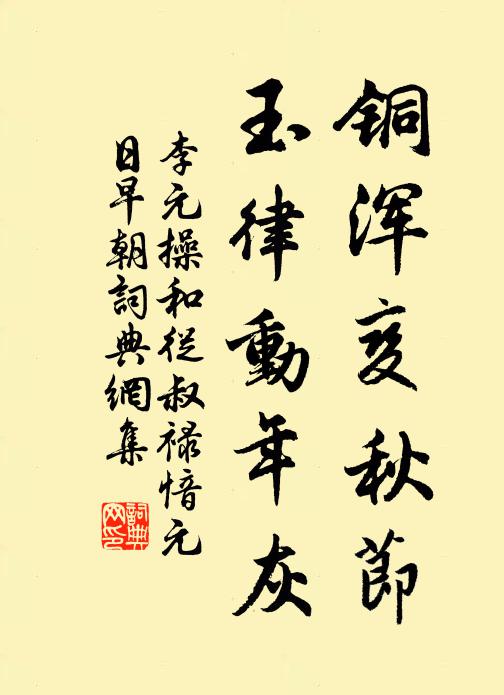 铜浑变秋節
玉律動年灰
李元操和從叔祿愔元
日早朝詞典網集
詞典网印